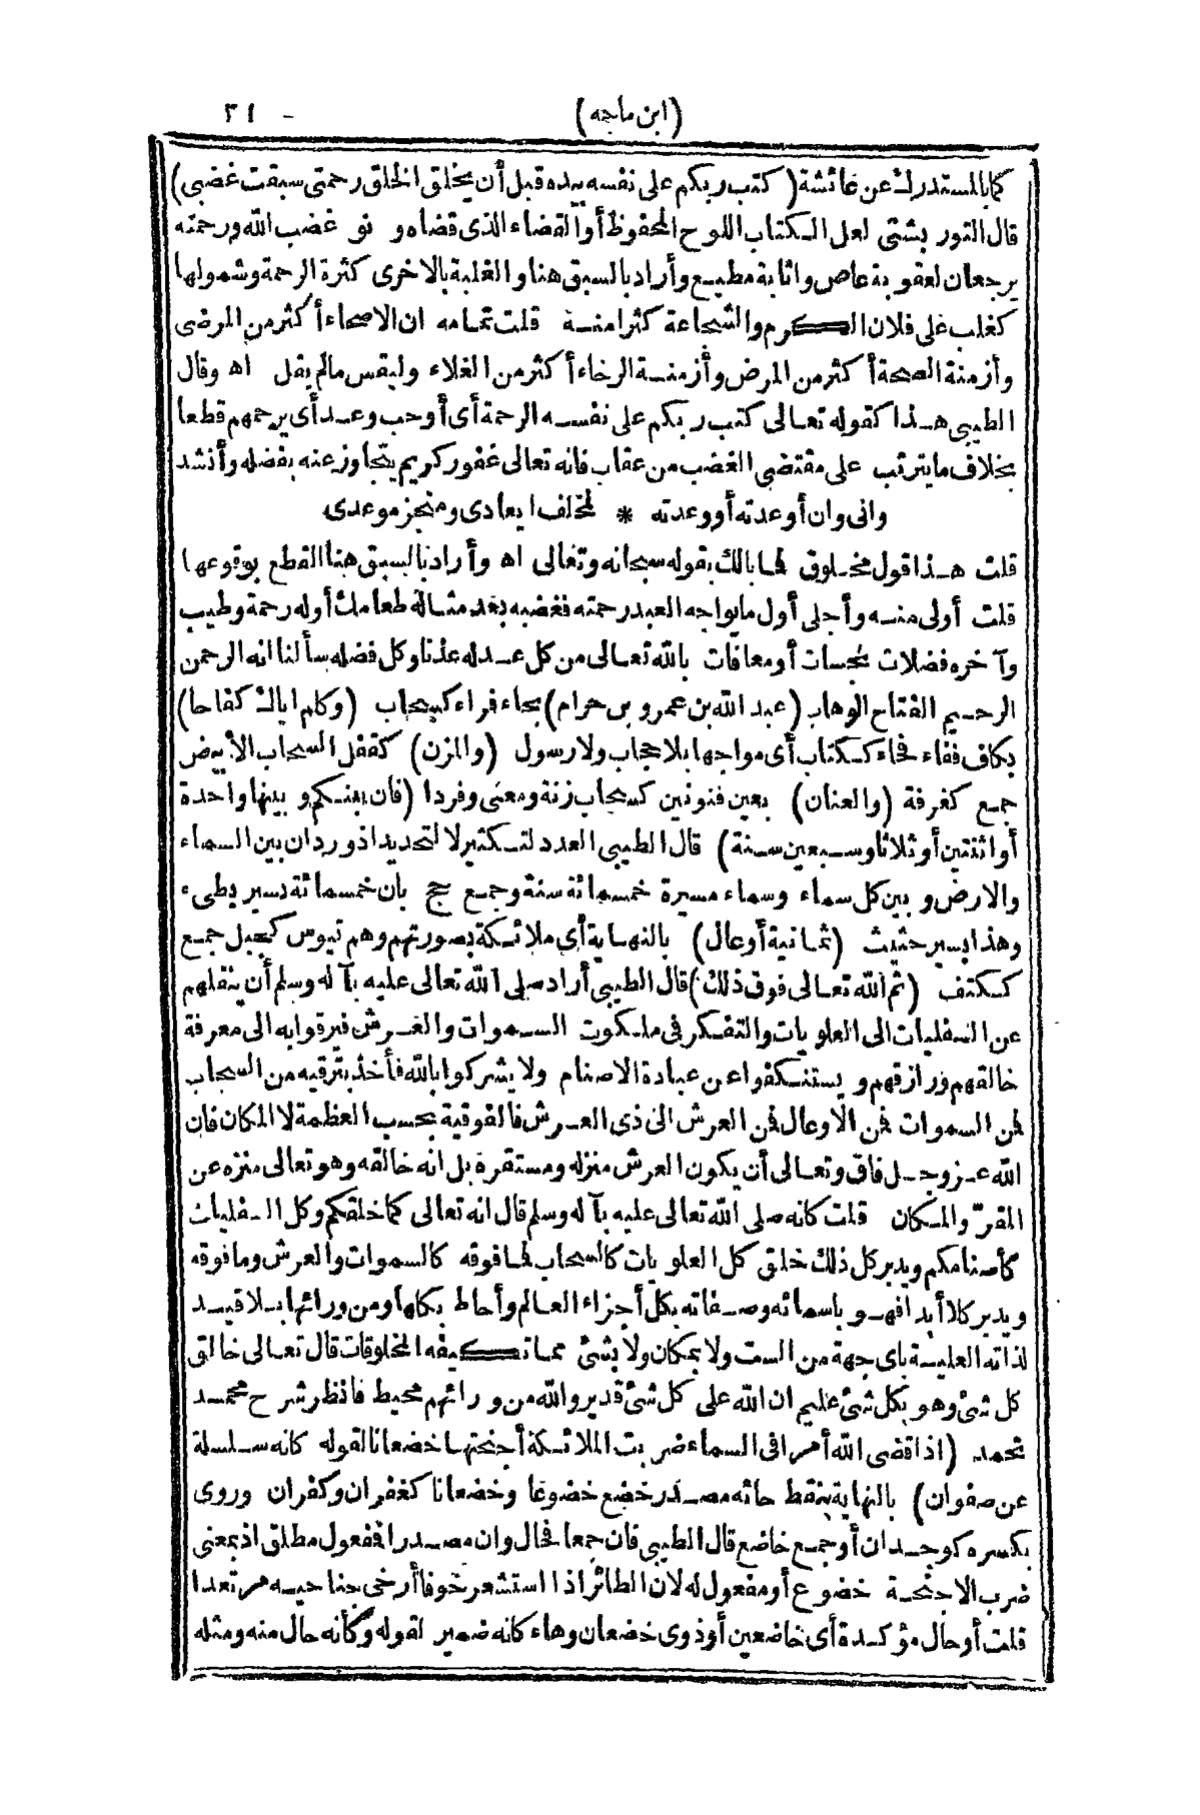 (ابن ماجه) - ٣١
كما بالمستدرك عن عائشة (كتب ربكم على نفسه بيده قبل أن يخلق الخلق رحمتى سبقت غضبى)
قال التور بشتى لعل الكتاب اللوح المحفوظ أو القضاء الذى قضاه و نو غضب الله ورحمته
يرجعان لعقوبة عاص واثابة مطيع وأراد بالسبق هنا والغلبة بالاخرى كثرة الرحمة وشمولها
كغلب على فلان الكرم والشجاعة كثرا منه قلت تمامه ان الاصحاء أكثر من المرضى
وأزمنة الصحة أكثر من المرض وأزمنة الرخاء أكثر من الغلاء وليقس مالم يقل اه وقال
الطيبى هذا كقوله تعالى كتب ربكم على نفسه الرحمة أى أوجب وعد أى يرحمهم قطعا
بخلاف ما يترتب على مقتضى الغضب من عقاب فانه تعالى غفور كريم يتجاوز عنه بفضله وأنشد
وانى وان أوعدته أو وعدته * لمخلف ايعادى ومنجز موعدى
قلت هذا قول مخلوق فما بالك بقوله سبحانه وتعالى اه وأراد بالسبق هنا القطع بوقوعها
قلت أولى منه وأجلى أول ما يواجه العبد رحمته فغضبه بعد مثاله طعامك أوله رحمة وطيب
وآخره فضلات نجسات أو معافات بالله تعالى من كل عدله عذنا وكل فضله سألنا انه الرحمن
الرحيم الفتاح الوهاب (عبد الله بن عمرو بن حرام) بحاء فراء كسحاب (وكلم اباك كفاحا)
بكاف ففاء فحاء ككتاب أى مواجها بلا حجاب ولا رسول (والمزن) كقفل السحاب الأبيض
جمع كغرفة (والعنان) بعين فنونين كسحاب زنة ومعنى وفردا (فان بينكم وبينها واحدة
أو اثنتين أو ثلاثا وسبعين سنة) قال الطيبى العدد لتكثير لا لتحديد اذ ورد ان بين السماء
والارض وبين كل سماء وسماء مسيرة خمسمائة سنة وجمع حج بان خمسمائة بسير بطىء
وهذا بسير حثيث (ثمانية أوعال) بالنهاية أى ملائكة بصورتهم وهم تيوس كجبل جمع
ككتف (ثم الله تعالى فوق ذلك) قال الطيبى أراد صلى الله تعالى عليه بآله وسلم أن ينقلهم
عن السفليات الى العلويات والتفكر فى ملكوت السموات والعرش فيرقوا به الى معرفة
خالقهم ورازقهم ويستنكفوا عن عبادة الاصنام ولا يشركوا بالله فأخذ بترقيه من السحاب
فمن السموات فمن الاوعال فمن العرش الى ذى العرش فالفوقية بحسب العظمة لا المكان فان
الله عز وجل فاق وتعالى أن يكون العرش منزله ومستقره بل انه خالقه وهو تعالى منزه عن
المقرّ والمكان قلت كانه صلى الله تعالى عليه بآله وسلم قال انه تعالى كما خلقكم وكل السفليات
كأصنامكم ويدبر كل ذلك خلق كل العلويات كالسحاب فما فوقه كالسموات والعرش وما فوقه
ويدبر كلا أبدا فهو باسمائه وصفاته بكل أجزاء العالم وأحاط بكلها ومن ورائها بلا قيد
لذاته العلية باى جهة من الست ولا بمكان ولا بشئ مما تكيفه المخلوقات قال تعالى خالق
كل شئ وهو بكل شئ عليم ان الله على كل شئ قدير والله من ورائهم محيط فانظر شرح محمد
تحمد (اذا قضى الله أمرا فى السماء ضربت الملائكة أجنحتها خضعانا لقوله كانه سلسلة
عن صفوان) بالنهاية بنقط حائه مصدر خضع خضوعا وخضعانا كغفران وكفران وروى
بكسره كوجدان أو جمع خاضع قال الطيبى فان جمعا فحال وان مصدرا فمفعول مطلق اذ بمعنى
ضرب الاجنحة خضوع أو مفعول له لان الطائر اذا استشعر خوفا أرخى جناحيه مرتعدا
قلت أو حال مؤكدة أى خاضعين أو ذوى خضعان وهاء كانه ضمير لقوله وكأنه حال منه ومثله